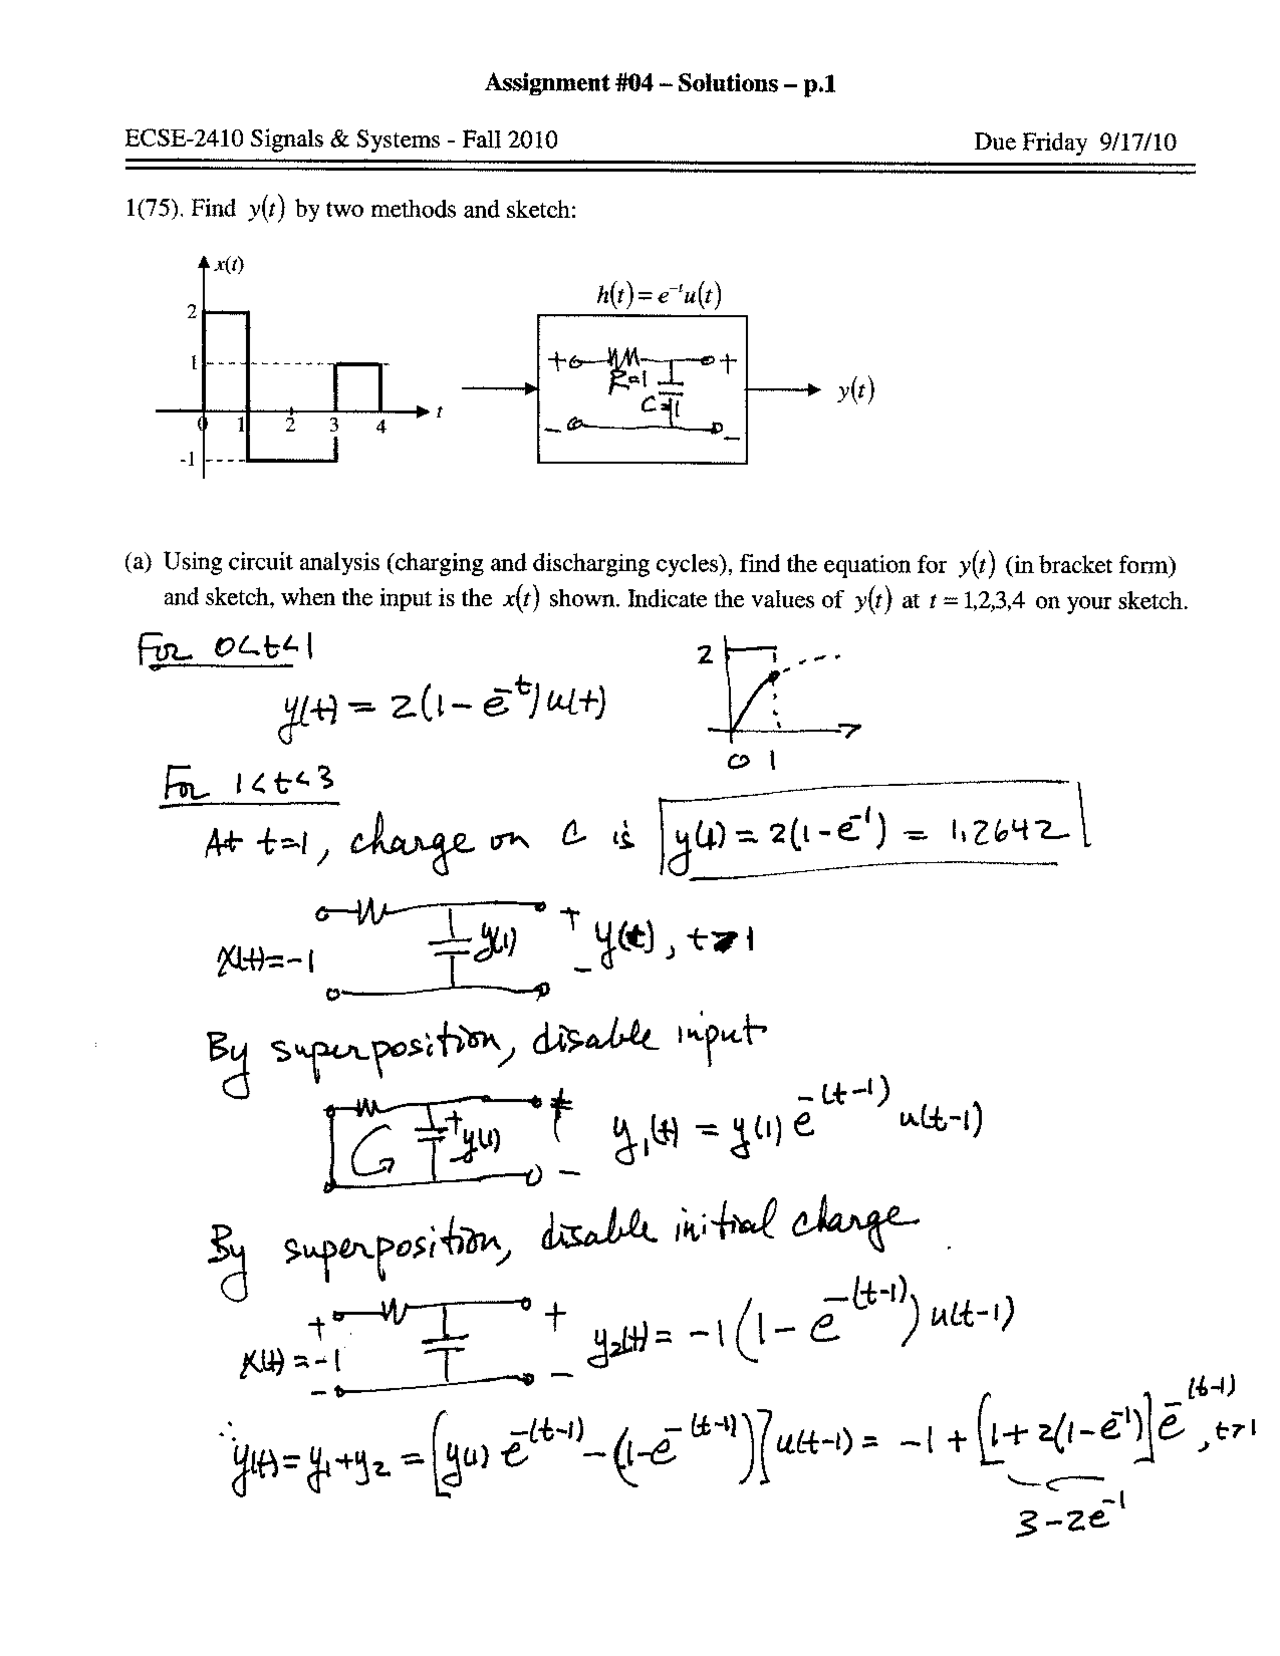 Assignment #04 – Solutions – p.1
ECSE-2410 Signals & Systems - Fall 2010 Due Friday 9/17/10
1(75). Find y(t) by two methods and sketch:
x(t)
2
1
0 1 2 3 4 t
-1
h(t) = e^{-t}u(t)
+ +
R=1
C=1
- -
y(t)
(a) Using circuit analysis (charging and discharging cycles), find the equation for y(t) (in bracket form)
and sketch, when the input is the x(t) shown. Indicate the values of y(t) at t = 1,2,3,4 on your sketch.
For 0<t<1
y(t) = 2(1 - e^{-t})u(t)
2
0 1
For 1<t<3
At t=1, charge on C is y(1) = 2(1-e^{-1}) = 1.2642
x(t)=-1 y(1) + - y(t), t>1
By superposition, disable input
+ y(1) - + - y₁(t) = y(1) e^{-(t-1)} u(t-1)
By superposition, disable initial charge
+ x(t) = -1 - + - y₂(t) = -1(1 - e^{-(t-1)}) u(t-1)
∴ y(t) = y₁+y₂ = [y(1) e^{-(t-1)} - (1-e^{-(t-1)})] u(t-1) = -1 + [1+2(1-e^{-1})] e^{-(t-1)}, t>1
3-2e^{-1}